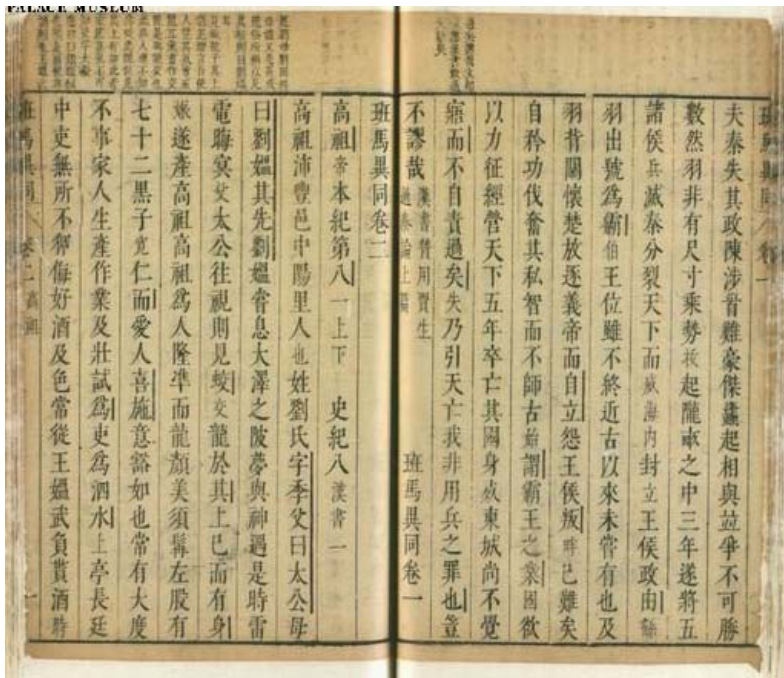 PALACE MUSEUM
班馬異同 卷一
夫秦失其政陳涉首難豪傑蠭起相與並爭不可勝
數然羽非有尺寸乘勢拔起隴畝之中三年遂將五
諸侯兵滅秦分裂天下而威海内封立王侯政由繇
羽出號為霸伯王位雖不終近古以來未嘗有也及
羽背關懷楚放逐義帝而自立怨王侯叛畔己難矣
自矜功伐奮其私智而不師古始謂霸王之業國欲
以力征經營天下五年卒亡其國身死東城尚不覺
寤而不自責過矣失乃引天亡我非用兵之罪也豈
不謬哉 漢書贊用賈生過秦論上篇 班馬異同卷一
班馬異同卷二
高祖帝本紀第八一上下 史紀八漢書一
高祖沛豐邑中陽里人也姓劉氏字季父曰太公母
曰劉媪其先劉媪嘗息大澤之陂夢與神遇是時雷
電晦冥父太公往視則見蛟交龍於其上已而有身
娠遂產高祖高祖為人隆準而龍顏美須髯左股有
七十二黑子寬仁而愛人喜施意豁如也常有大度
不事家人生產作業及壯試為吏為泗水上亭長廷
中吏無所不狎侮好酒及色常從王媪武負貰酒時
班馬異同 卷二 高祖 一